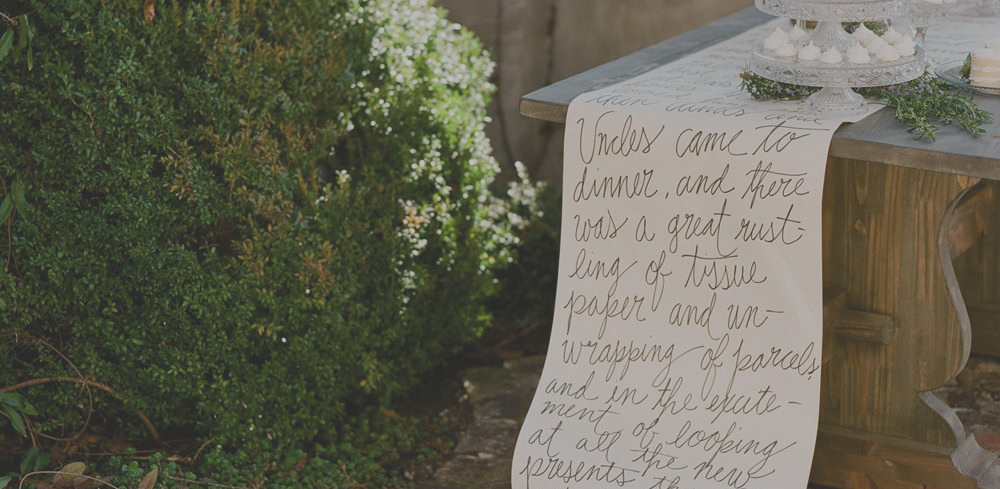 Uncles came to
dinner, and there
was a great rust-
ling of tissue
paper and un-
wrapping of parcels,
and in the excite-
ment of looking
at all the new
presents the